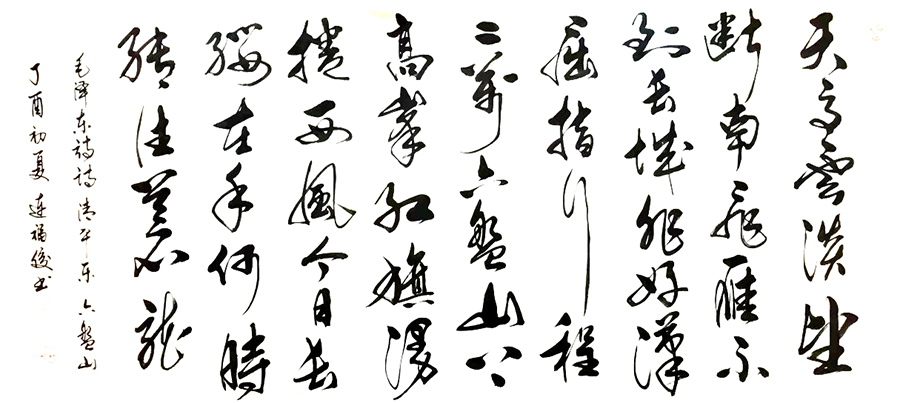 天高雲淡望
断南飛雁不
到長城非好漢
屈指行程
二萬六盤山上
高峯紅旗漫
捲西風今日長
纓在手何時
縛住蒼龍
毛泽东詩词 清平乐 六盤山
丁酉初夏 連福俊书